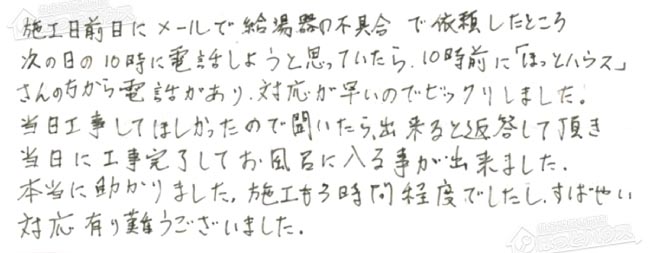 施工日前日にメールで給湯器の不具合で依頼したところ
次の日の10時に電話しようと思っていたら、10時前に「ほっとハウス」
さんの方から電話があり、対応が早いのでビックリしました。
当日工事してほしかったので聞いたら、出来ると返答して頂き
当日に工事完了してお風呂に入る事が出来ました。
本当に助かりました。施工も3時間程度でしたし、すばやい
対応有り難うございました。
ほっとハウス